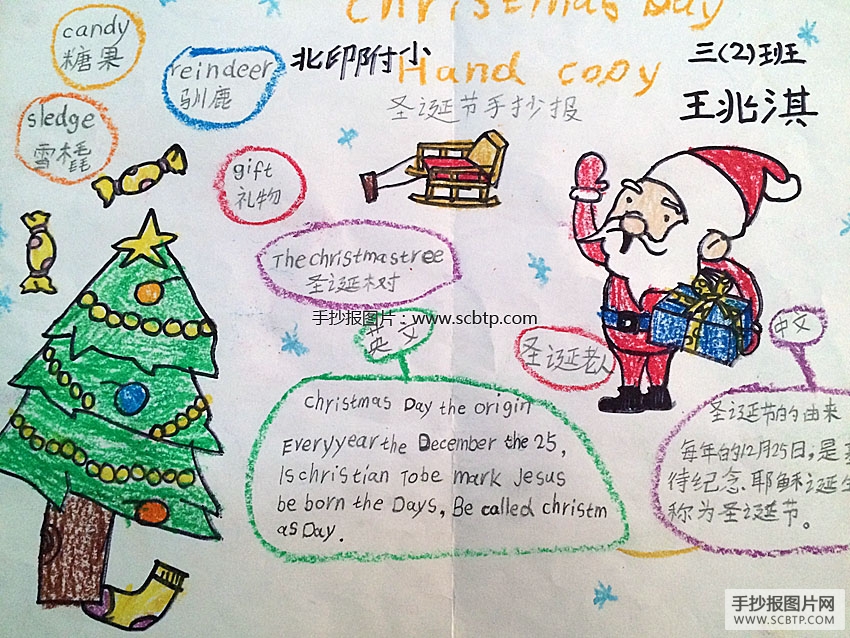 Christmas Day
candy
糖果
reindeer
驯鹿
北印附小
三(2)班
Hand copy
王兆淇
圣诞节手抄报
sledge
雪橇
gift
礼物
The christmas tree
圣诞树
手抄报图片：www.scbtp.com
英文
圣诞老人
中文
christmas Day the origin
Everyyear the December the 25,
Is christian To be mark Jesus
be born the Days, Be called christm
as Day.
圣诞节的由来
每年的12月25日，是
待纪念耶稣诞生
称为圣诞节。
手抄报图片网
WWW.SCBTP.COM